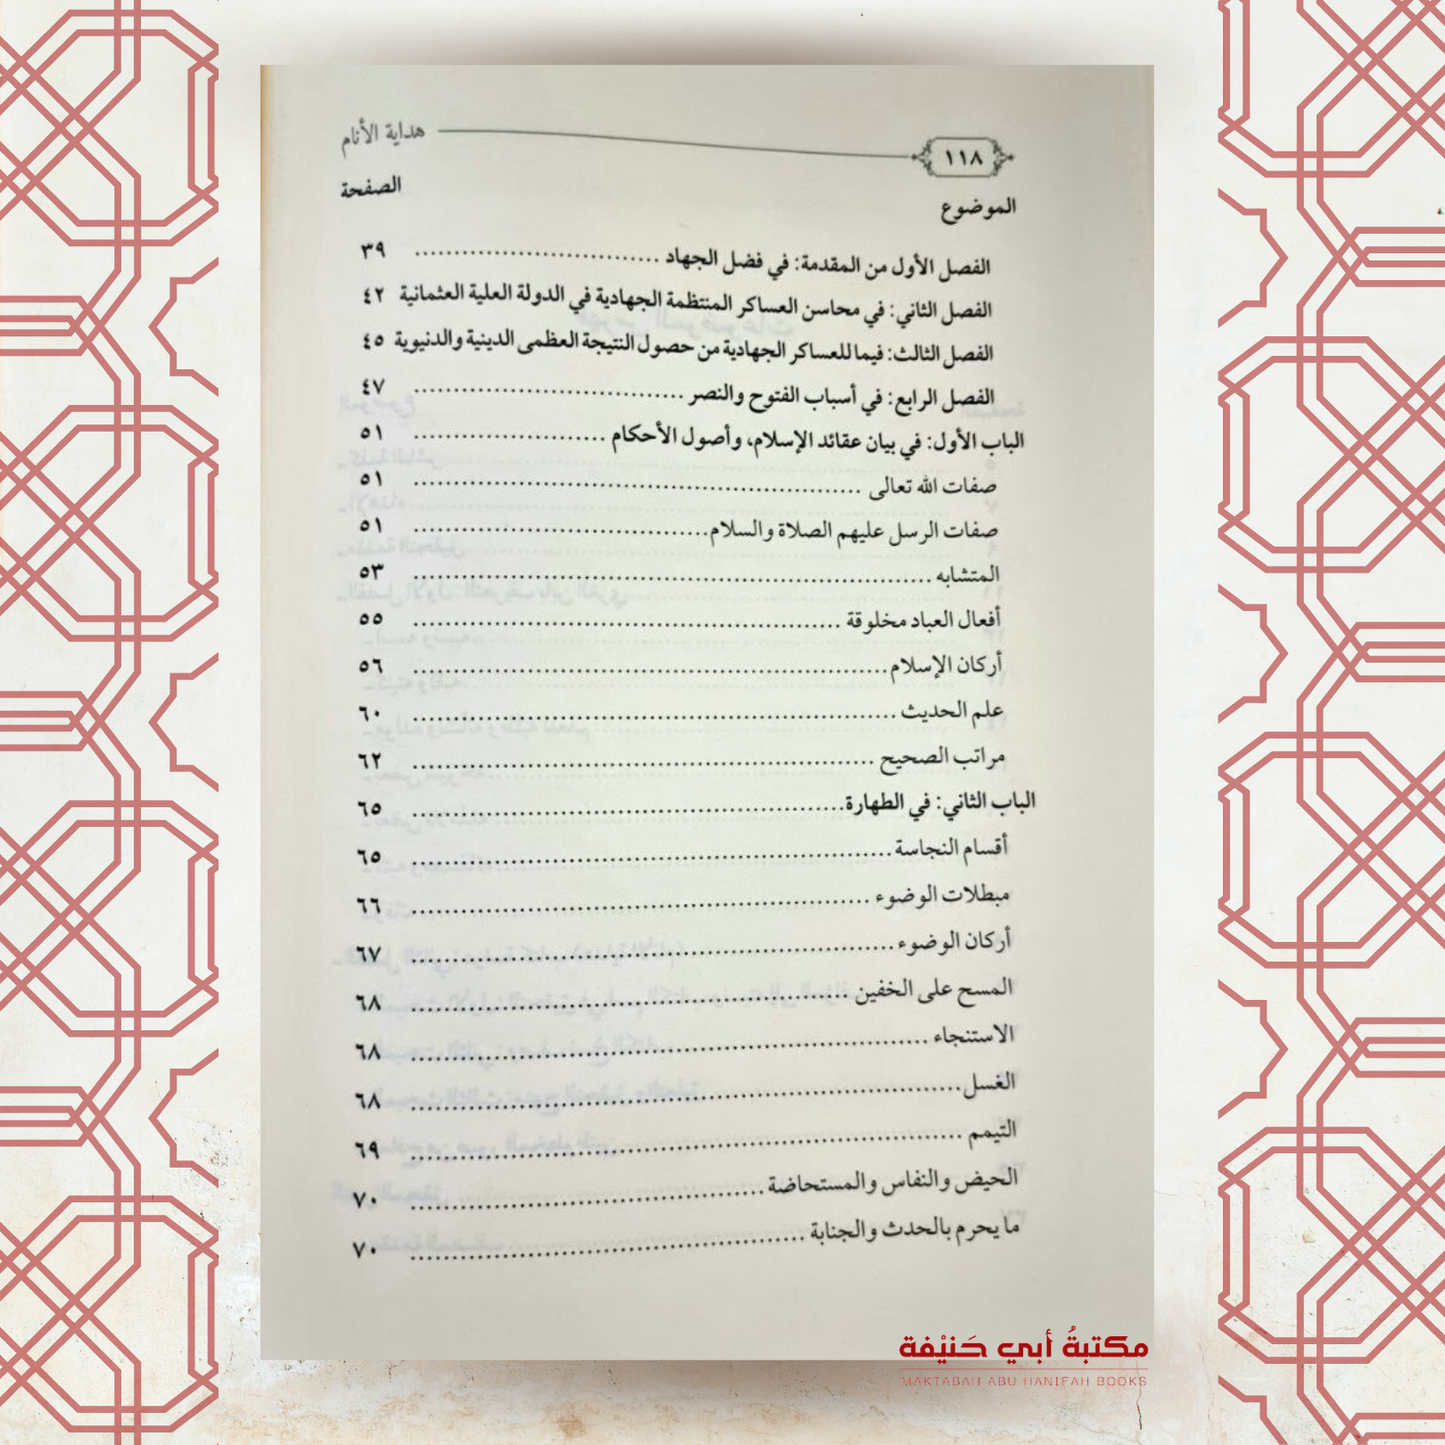 ١١٨ هداية الأنام
الموضوع الصفحة
الفصل الأول من المقدمة: في فضل الجهاد .............................. ٣٩
الفصل الثاني: في محاسن العساكر المنتظمة الجهادية في الدولة العلية العثمانية ٤٢
الفصل الثالث: فيما للعساكر الجهادية من حصول النتيجة العظمى الدينية والدنيوية ٤٥
الفصل الرابع: في أسباب الفتوح والنصر .............................. ٤٧
الباب الأول: في بيان عقائد الإسلام، وأصول الأحكام ........................ ٥١
صفات الله تعالى .............................. ٥١
صفات الرسل عليهم الصلاة والسلام .............................. ٥١
المتشابه .............................. ٥٣
أفعال العباد مخلوقة .............................. ٥٥
أركان الإسلام .............................. ٥٦
علم الحديث .............................. ٦٠
مراتب الصحيح .............................. ٦٢
الباب الثاني: في الطهارة .............................. ٦٥
أقسام النجاسة .............................. ٦٥
مبطلات الوضوء .............................. ٦٦
أركان الوضوء .............................. ٦٧
المسح على الخفين .............................. ٦٨
الاستنجاء .............................. ٦٨
الغسل .............................. ٦٨
التيمم .............................. ٦٩
الحيض والنفاس والمستحاضة .............................. ٧٠
ما يحرم بالحدث والجنابة .............................. ٧٠
مكتبةُ أبي حَنيْفة
MAKTABAH ABU HANIFAH BOOKS